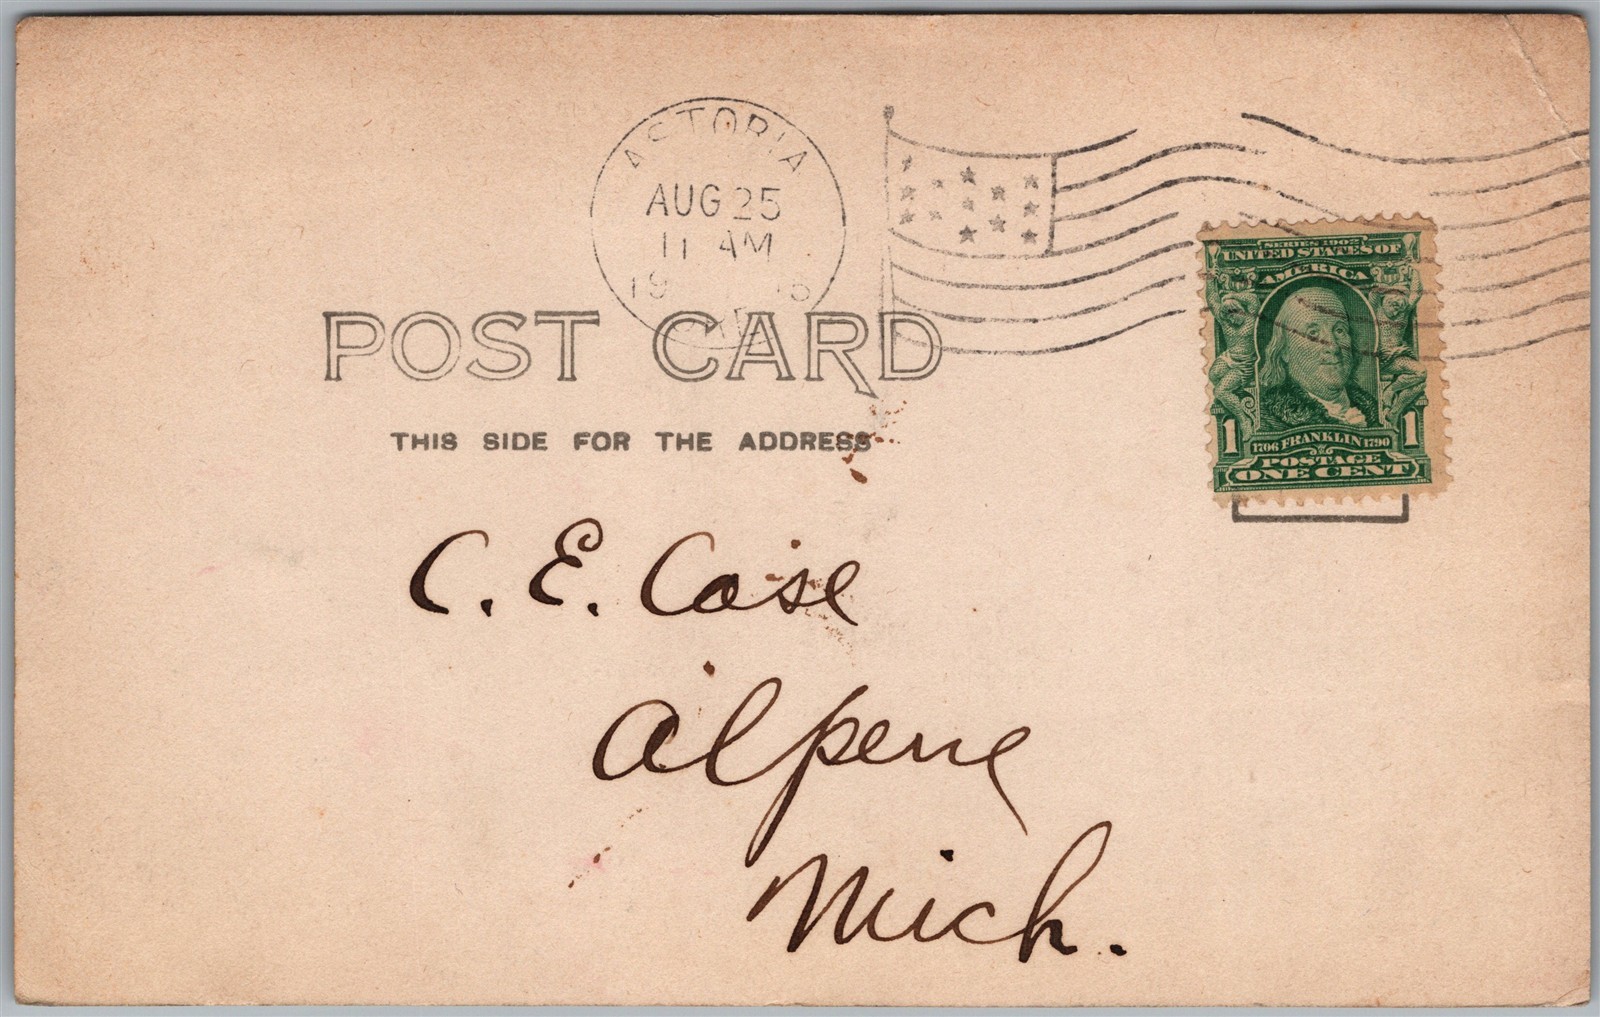 ASTORIA
AUG 25
11 AM
19
POST CARD
THIS SIDE FOR THE ADDRESS
SERIES 1902
UNITED STATES OF
AMERICA
1 1706 FRANKLIN 1790 1
POSTAGE
ONE CENT
C. E. Case
Alpena
Mich.